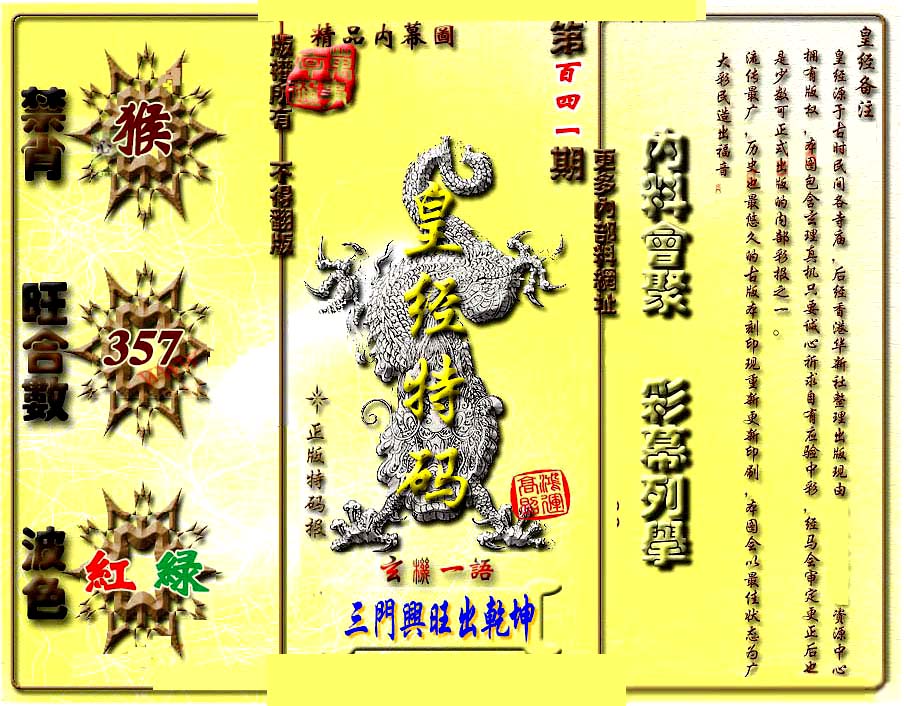 精品内幕圖
第百四一期
版權所有 不得翻版
更多内部料網址
皇经特码
正版特码报
鴻運高照
玄機一語
三門興旺出乾坤
禁肖
猴
旺合數
357
波色
紅 緑
内料會聚 彩幕列舉
皇经备注
皇经源于古时民间各寺庙，后经香港华新社整理出版现由 资源中心
拥有版权，本图包含玄理真机只要诚心祈求自有应验中彩，经马会审定更正后也
是少数可正式出版的内部彩报之一。
流传最广，历史也最悠久的古版本刻印现重新更新印刷，本图会以最佳状态为广
大彩民造出福音